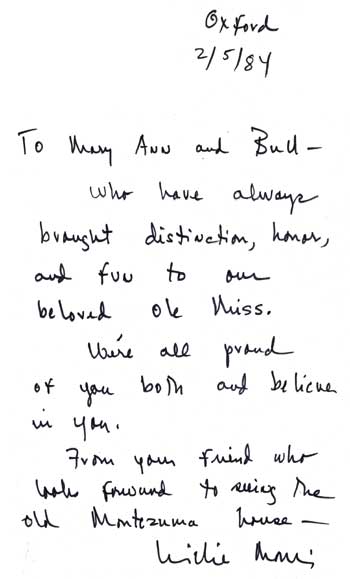 Oxford
2/5/84
To Mary Ann and Bull—
who have always
brought distinction, honor,
and fun to our
beloved Ole Miss.
We're all proud
of you both and believe
in you.
From your friend who
looks forward to seeing the
old Montezuma house—
Willie Morris